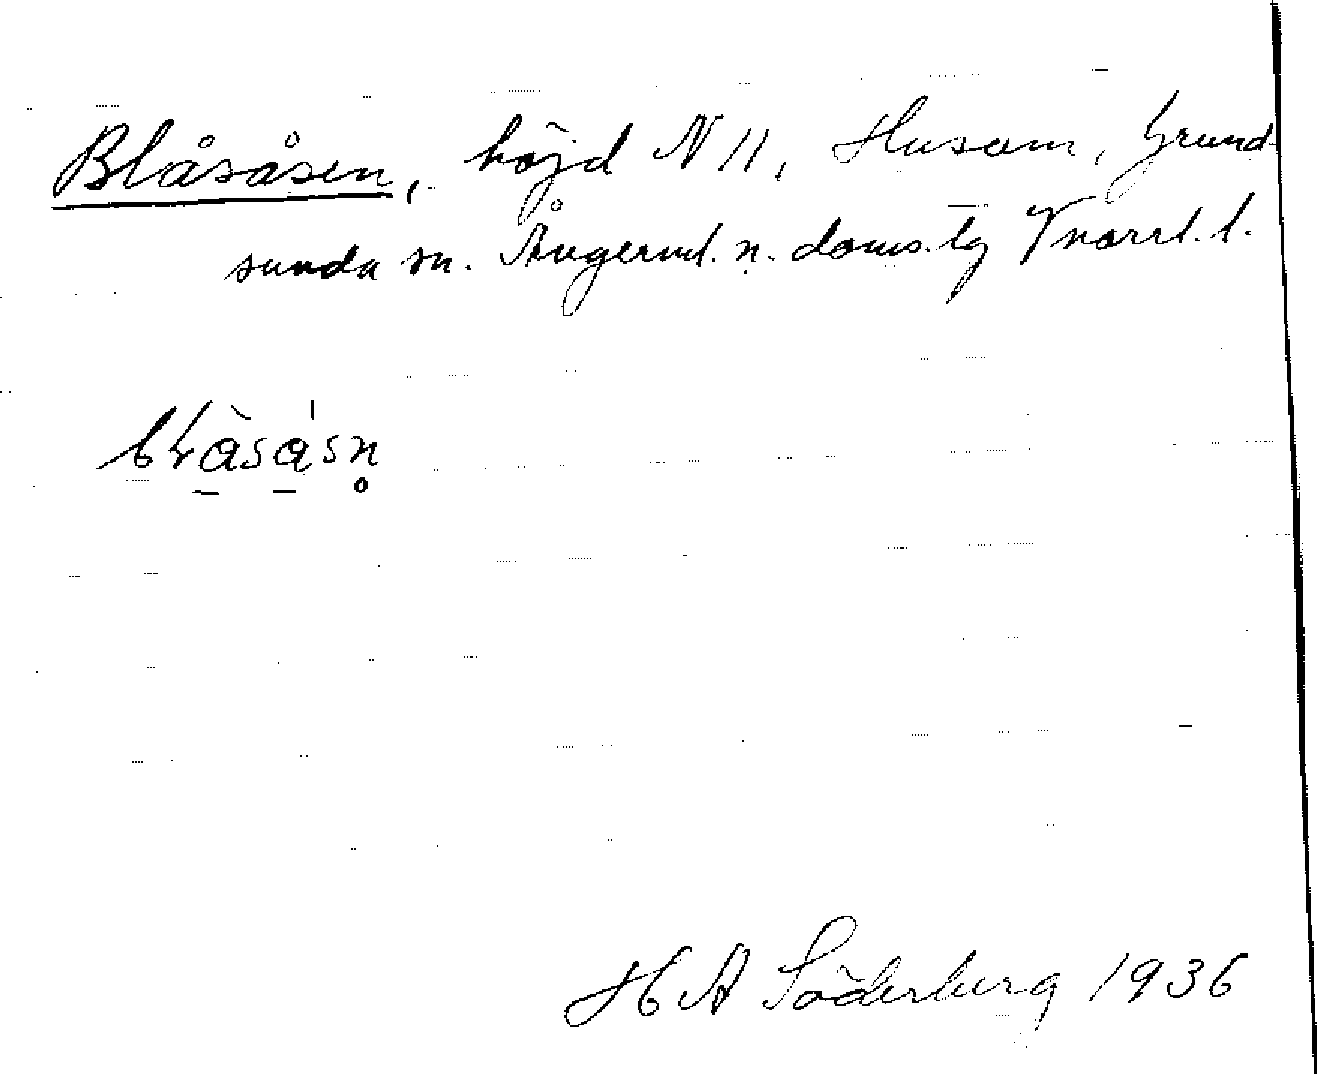 Blåsåsen, höjd N 11, Husum, Grund-
sunda sn. Ångerml. n. doms.lg Vnorrl. l.
H A Söderberg 1936